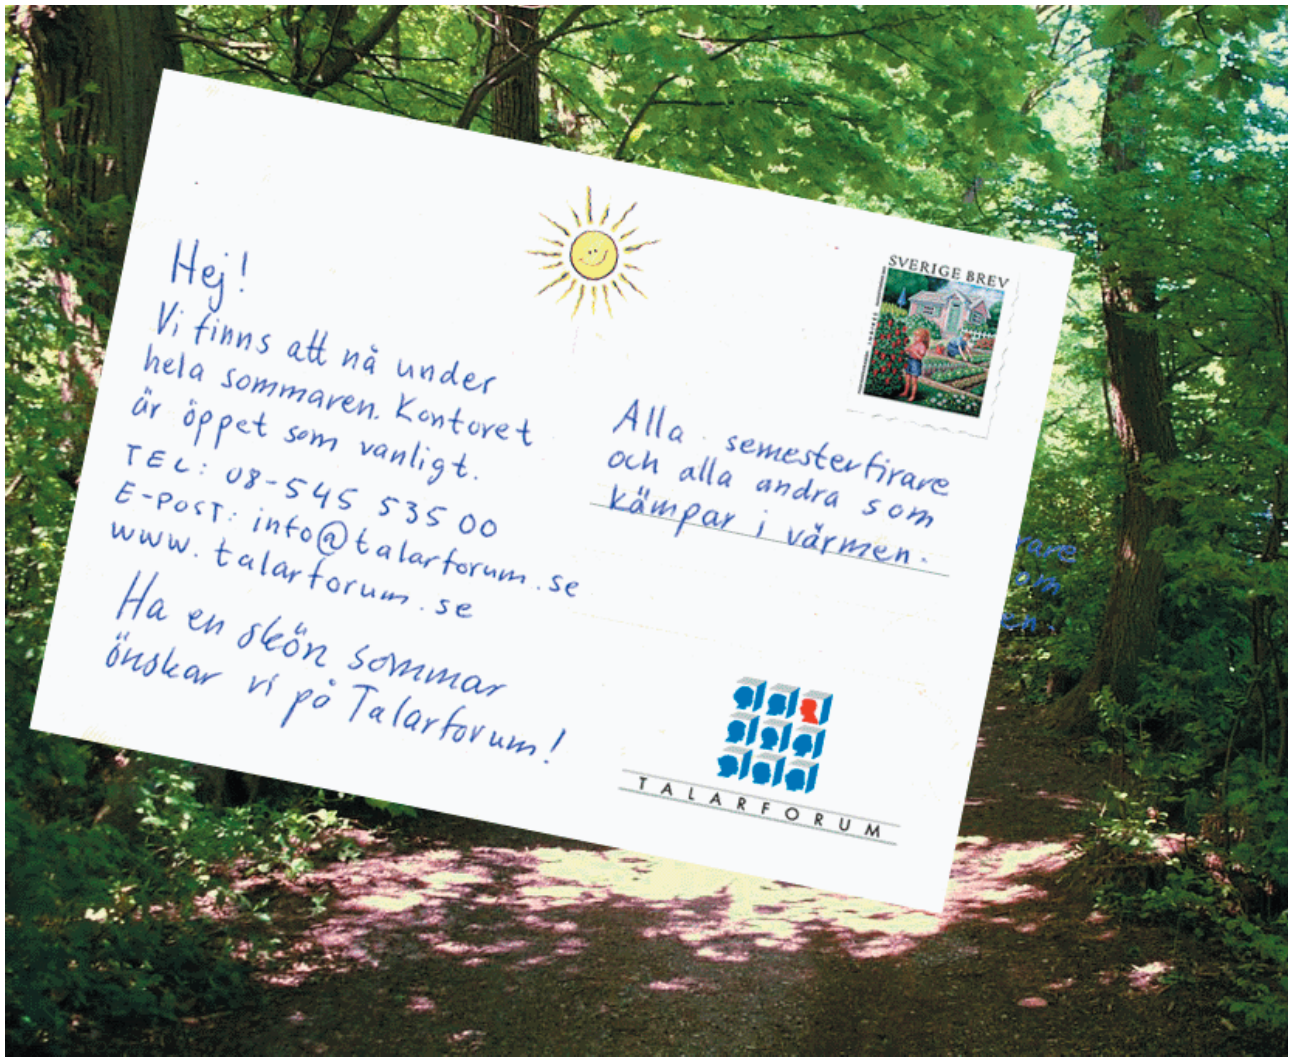 Hej!
Vi finns att nå under
hela sommaren. Kontoret
är öppet som vanligt.
TEL: 08-545 535 00
E-POST: info@talarforum.se
www.talarforum.se
Ha en skön sommar
önskar vi på Talarforum!
SVERIGE BREV
Alla semesterfirare
och alla andra som
kämpar i värmen.
rare
om
en.
TALARFORUM